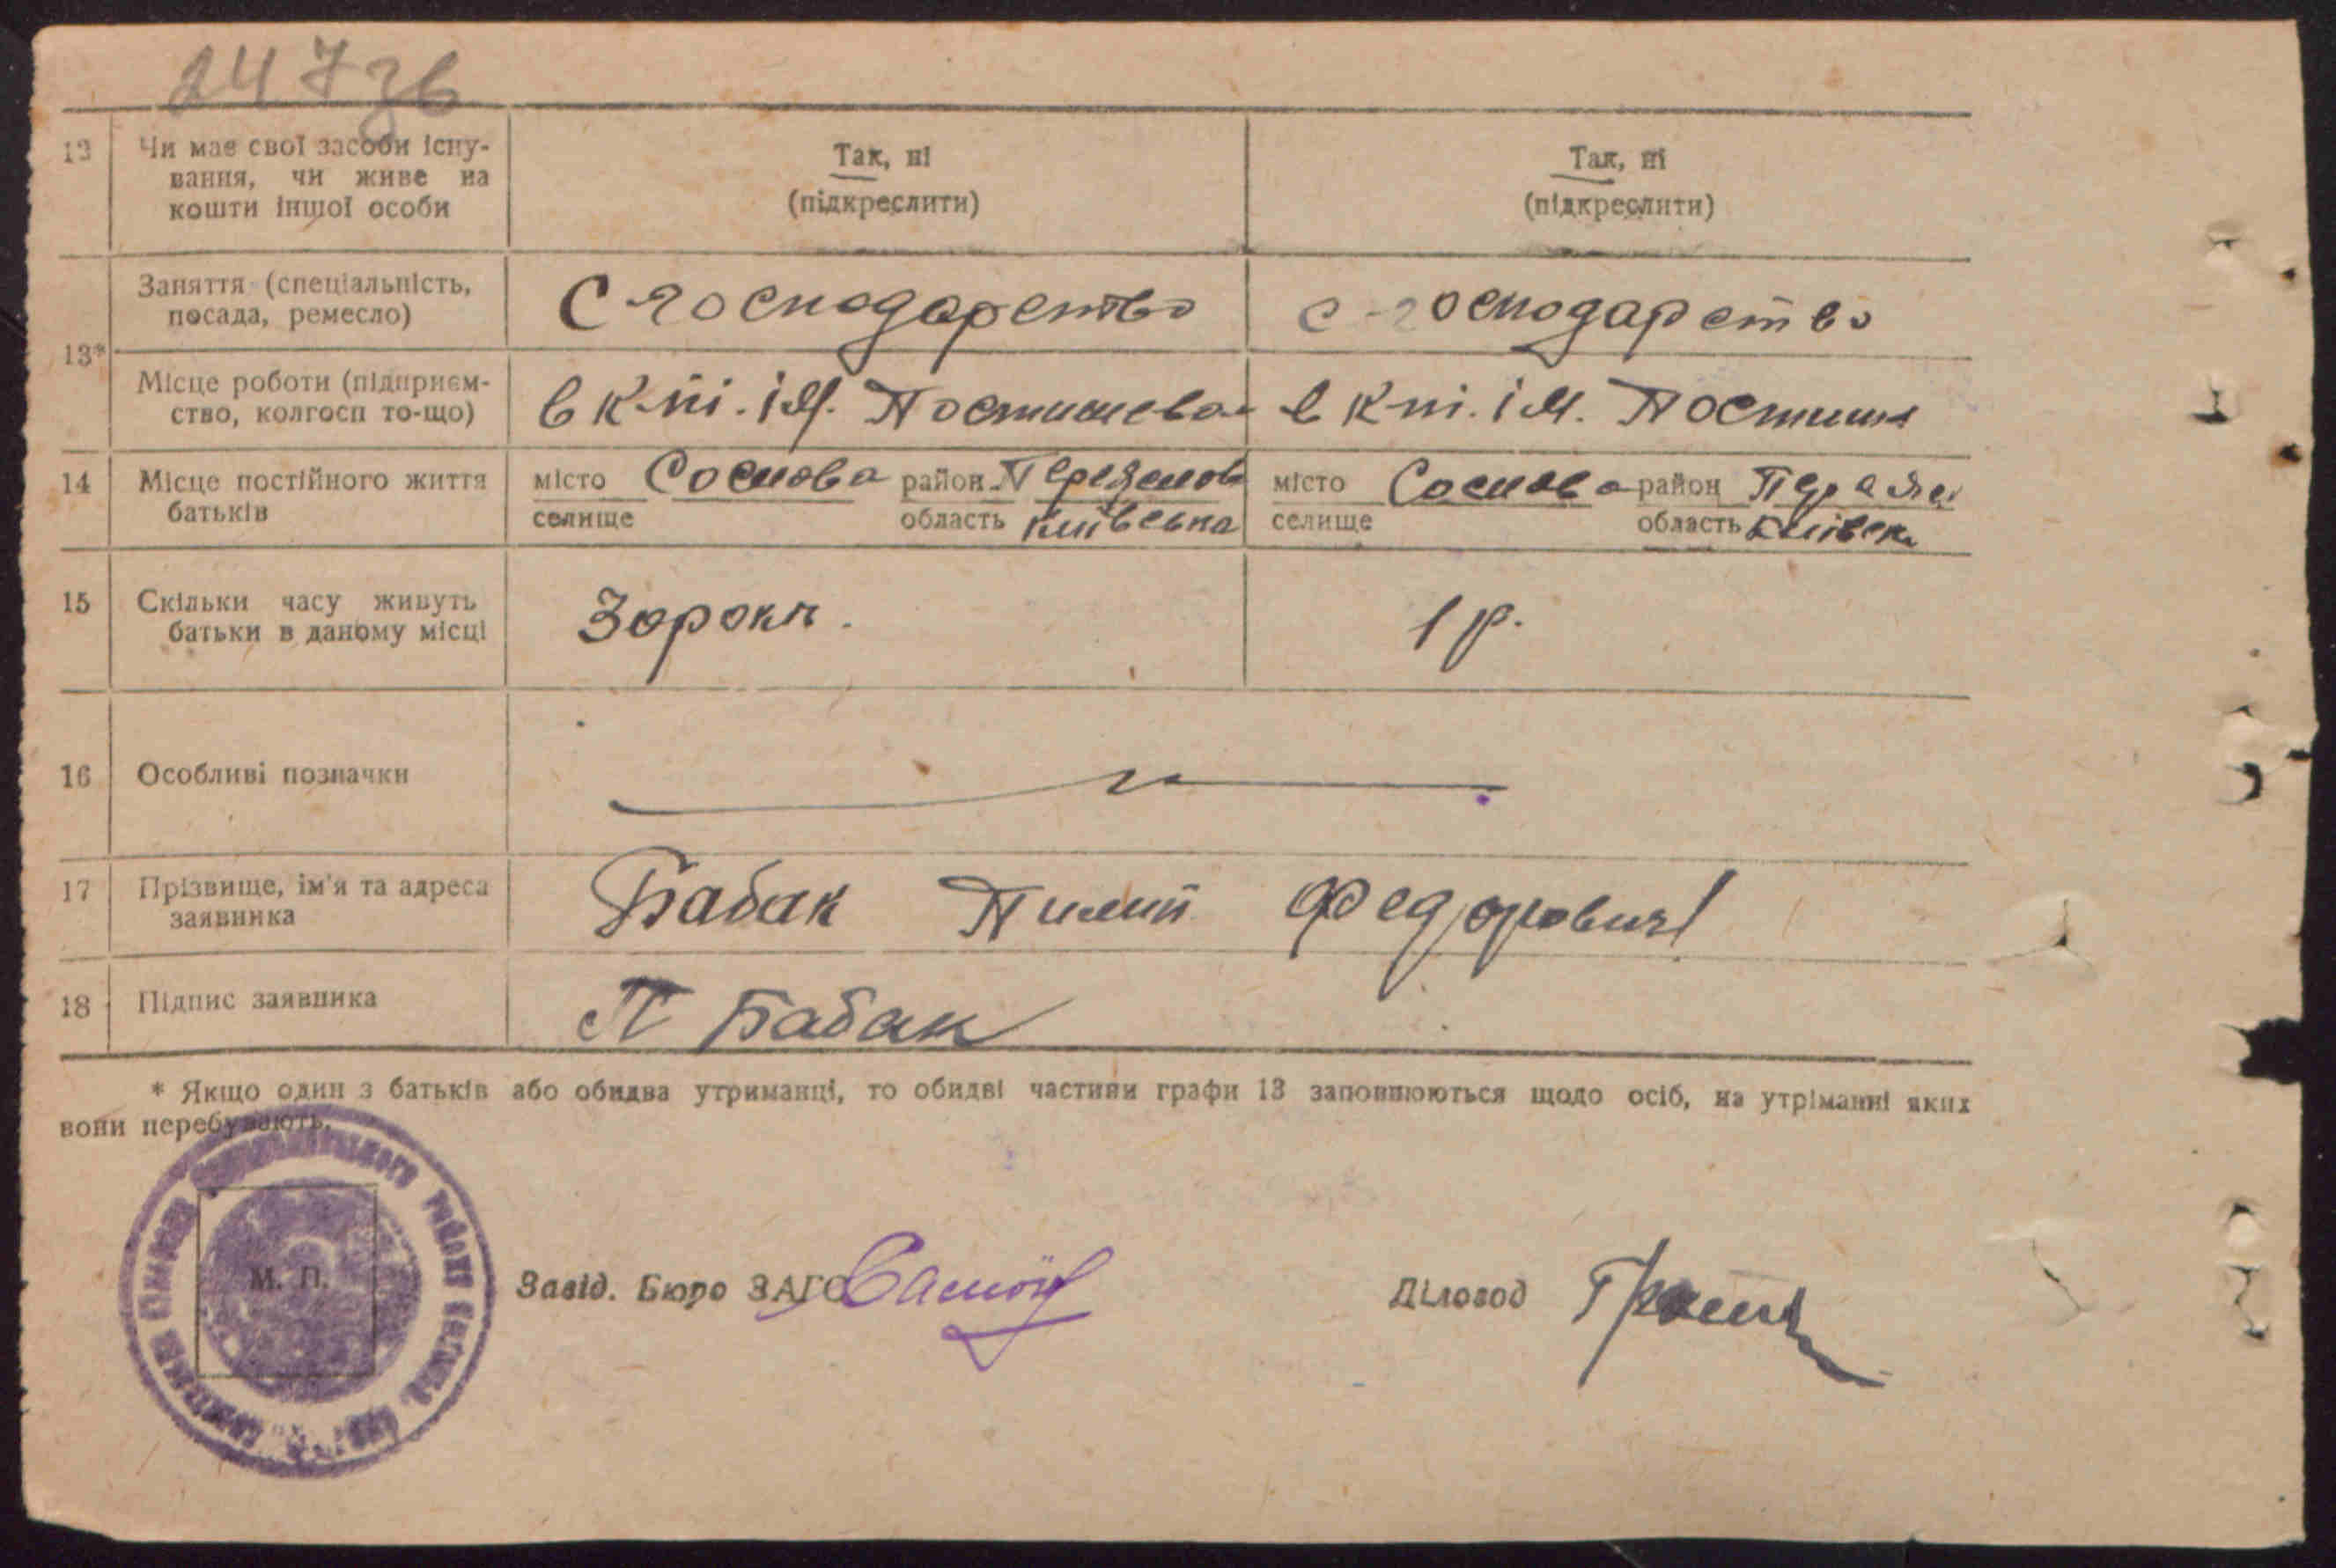 24736
13 Чи має свої засоби існу- Так, ні Так, ні
вання, чи живе на (підкреслити) (підкреслити)
кошти іншої особи
13* Заняття (спеціальність, С господарство с-господарство
посада, ремесло)
Місце роботи (підприєм- в к-ті. ім. Постишева в к-ті. ім.
ство, колгосп то-що)
14 Місце постійного життя місто Соснова район місто Соснова район
батьків селище область Київська селище область Київськ
15 Скільки часу живуть 3 роки. 1 р.
батьки в даному місці
16 Особливі позначки
17 Прізвище, ім'я та адреса Бабак Пилип Федорович
заявника
18 Підпис заявника П Бабак
* Якщо один з батьків або обидва утриманці, то обидві частини графи 13 заповнюються щодо осіб, на утріманні яких
вони перебувають.
М. П.
Завід. Бюро ЗАГС Діловод